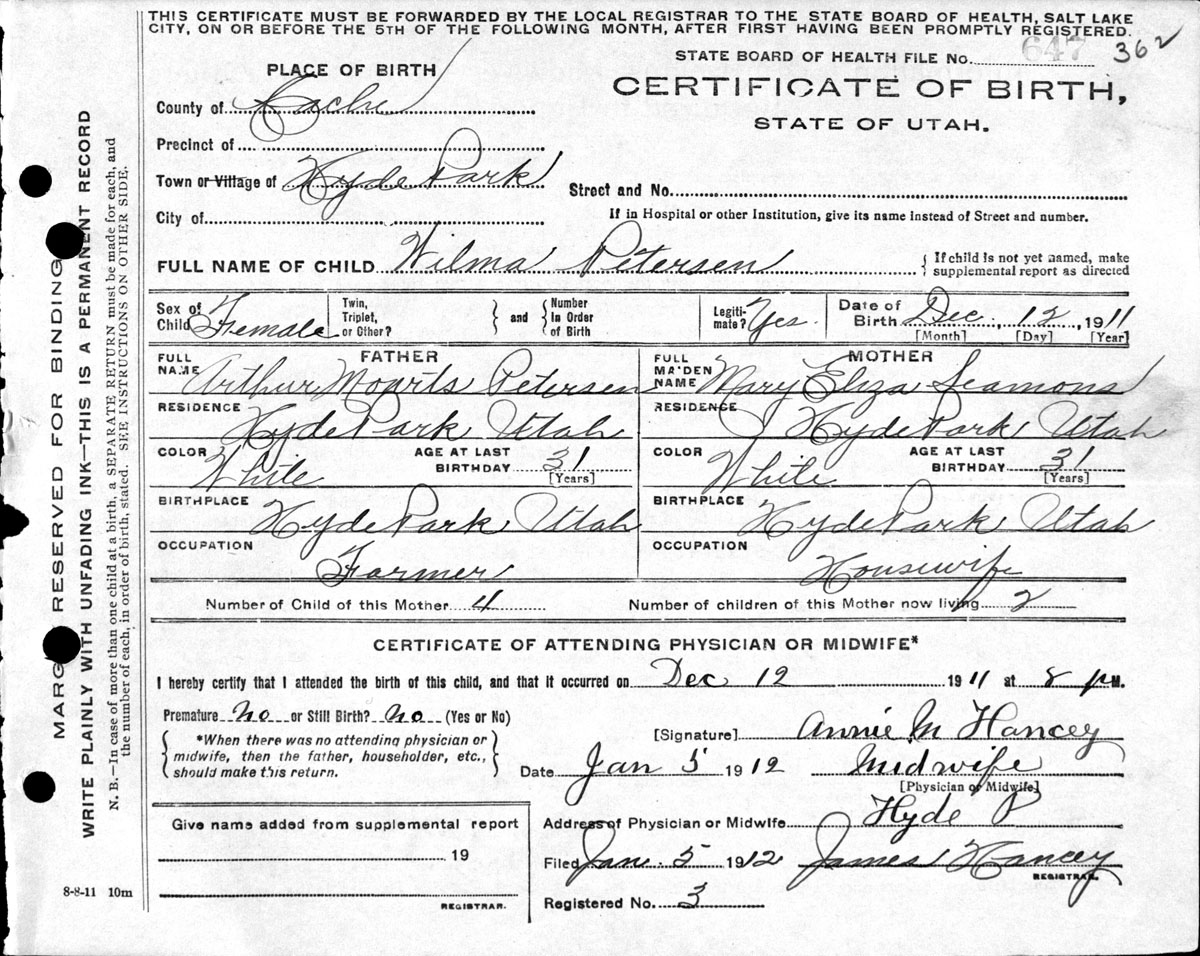 THIS CERTIFICATE MUST BE FORWARDED BY THE LOCAL REGISTRAR TO THE STATE BOARD OF HEALTH, SALT LAKE
CITY, ON OR BEFORE THE 5TH OF THE FOLLOWING MONTH, AFTER FIRST HAVING BEEN PROMPTLY REGISTERED.
STATE BOARD OF HEALTH FILE NO. 647 362
PLACE OF BIRTH
CERTIFICATE OF BIRTH,
STATE OF UTAH.
County of Cache
Precinct of
Town or Village of Hyde Park
Street and No.
City of
If in Hospital or other Institution, give its name instead of Street and number.
FULL NAME OF CHILD Wilma Petersen { If child is not yet named, make
supplemental report as directed
Sex of Child Female
Twin, Triplet, or Other? } and { Number in Order of Birth
Legitimate? Yes.
Date of Birth Dec, 12, 1911
[Month] [Day] [Year]
FATHER
FULL NAME Arthur Mourits Petersen
MOTHER
FULL MAIDEN NAME Mary Eliza Seamons
RESIDENCE Hyde Park Utah
RESIDENCE Hyde Park Utah
COLOR White AGE AT LAST BIRTHDAY 31 [Years]
COLOR White AGE AT LAST BIRTHDAY 31 [Years]
BIRTHPLACE Hyde Park Utah
BIRTHPLACE Hyde Park Utah
OCCUPATION Farmer
OCCUPATION Housewife
Number of Child of this Mother 4 Number of children of this Mother now living 2
CERTIFICATE OF ATTENDING PHYSICIAN OR MIDWIFE*
I hereby certify that I attended the birth of this child, and that it occurred on Dec 12 1911 at 8 p M.
Premature No or Still Birth? No (Yes or No)
{ *When there was no attending physician or
midwife, then the father, householder, etc.,
should make this return. }
[Signature] Annie M Hancey
Date Jan 5 1912 Midwife
[Physician or Midwife]
Give name added from supplemental report
19
REGISTRAR.
Address of Physician or Midwife Hyde P
Filed Jan. 5 1912 James Hancey
REGISTRAR.
Registered No. 3
8-8-11 10m
MARGIN RESERVED FOR BINDING
WRITE PLAINLY WITH UNFADING INK—THIS IS A PERMANENT RECORD
N. B.—In case of more than one child at a birth, a SEPARATE RETURN must be made for each, and
the number of each, in order of birth, stated. SEE INSTRUCTIONS ON OTHER SIDE.